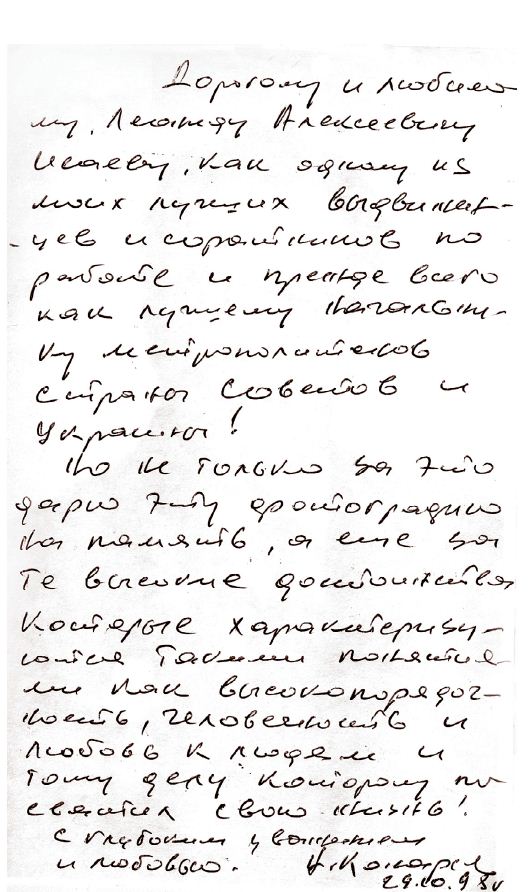 Дорогому и любимо-
му, Леониду Алексеевичу
Исаеву, как одному из
моих лучших выдвижен-
цев и соратников по
работе и прежде всего
как лучшему начальни-
ку метрополитенов
страны Советов и
Украины!
Но не только за это
дарю эту фотографию
на память, а еще за
те высокие достоинства
которые характеризу-
ются такими понятия-
ми как высокопорядоч-
ность, человечность и
любовь к людям и
тому делу которому по
святил свою жизнь!
с глубоким уважением
и любовью. Н. Конарев
29.10.98г